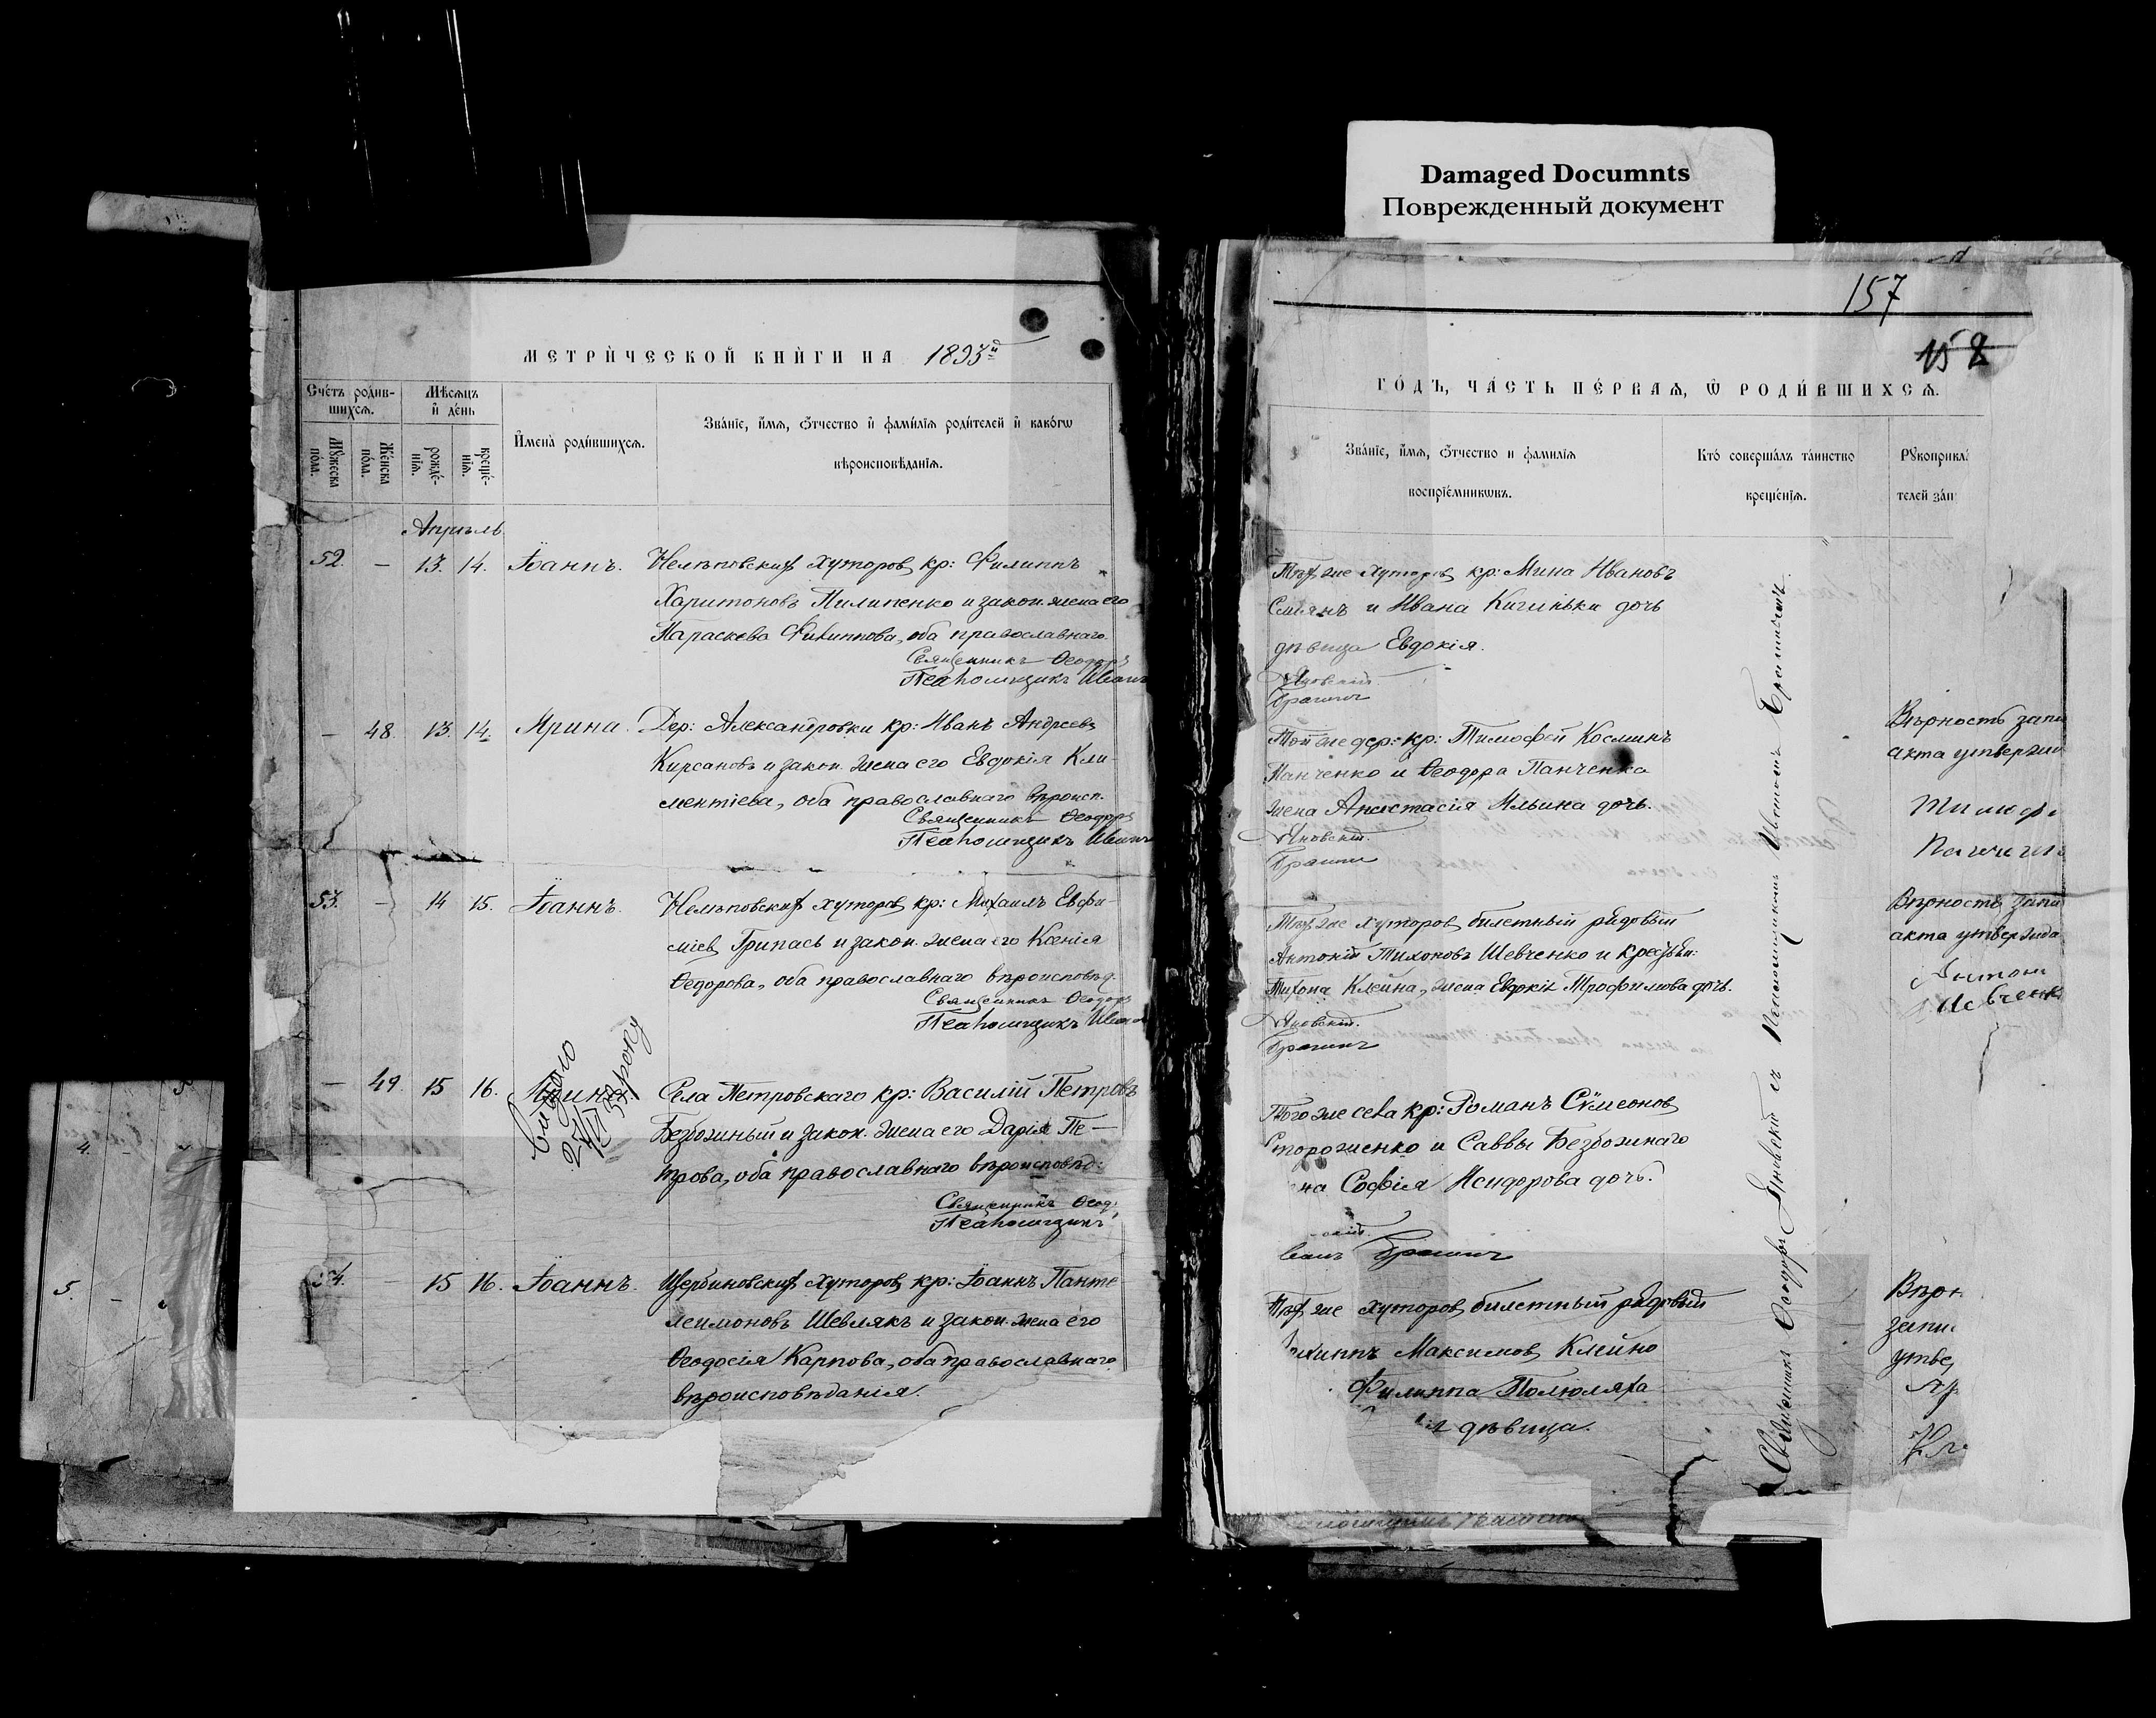 Damaged Documnts
Поврежденный документ
МЕТРИ́ЧЕСКОЙ КНИ́ГИ НА 1893й
Счетъ роди́в-
шихсѧ.
Мѣсѧцъ
и҆ де́нь
Мꙋжеска
по́ла.
Же́нска
по́ла.
рожде́-
нїѧ.
креще́-
нїѧ.
И҆мена̀ роди́вшихсѧ.
Зва́нїе, и҆́мѧ, ѻ҆́тчество и҆ фамі́лїѧ роди́телей и҆ како́гѡ
вѣроисповѣ́данїѧ.
Апрѣль
52. — 13. 14. Іоаннъ. Нелѣповскихъ хуторовъ кр: Филиппъ
Харитоновъ Пилипенко и закон. жена его
Параскева Филиппова, оба православнаго.
Священникъ Ѳеодоръ
Псаломщикъ Иванъ
— 48. 13. 14. Ирина. Дер: Александровки кр: Иванъ Андреевъ
Кирсановъ и закон. жена его Евдокія Кли-
ментіева, оба православнаго вѣроисп.
Священникъ Ѳеодоръ
Псаломщикъ Иванъ
53. — 14 15. Іоаннъ. Нелѣповскихъ хуторовъ кр: Михаилъ Евфи-
міевъ Грипась и закон. жена его Ксенія
Ѳедорова, оба православнаго вѣроисповѣд.
Священникъ Ѳеодоръ
Псаломщикъ Иванъ
— 49. 15 16. Ирина. Села Петровскаго кр: Василій Петровъ
Безбожный и закон. жена его Дарія Пе-
трова, оба православнаго вѣроисповѣд:
Священникъ Ѳеод
Псаломщикъ
видано
року
54. 15 16. Іоаннъ. Щербиновскихъ хуторовъ кр: Іоаннъ Панте
леимоновъ Шевлякъ и закон. жена его
Ѳеодосія Карпова, оба православнаго
вѣроисповѣданія.
4.
5.
157
158
ГО́ДЪ, ЧА́СТЬ ПЕ́РВАѦ, Ѽ РОДИ́ВШИХСѦ.
Зва́нїе, и҆́мѧ, ѻ҆́тчество и фамилїѧ
воспрїе́мникѡвъ.
Кто̀ соверша́лъ та́инство
креще́нїѧ.
Рꙋкоприкла
телей за́п
Тѣхъ же хуторовъ кр: Мина Ивановъ
Смиянъ и Ивана Кичиньки дочь
дѣвица Евдокія.
Яновскій.
Брагинъ
Той же дер: кр: Тимофей Косминъ
Панченко и Ѳеодора Панченка
жена Анастасія Ильина дочь.
Яновскій.
Брагинъ
Вѣрность запи
акта утвержд
Тимоф
Панчен
Тѣхъ же хуторовъ билетный рядовый
Антоній Тихоновъ Шевченко и крестьян:
Тихона Клейна, жена Евдокія Трофимова дочь.
Яновскій.
Брагинъ
Вѣрность запи
акта утвержда
Антон
Шевченк
Того же села кр: Романъ Сѵмеоновъ
Стороженко и Саввы Безбожнаго
на Софія Исидорова дочь.
скій
ванъ Брагинъ
Тѣхъ же хуторовъ билетный рядовый
липпъ Максимовъ Клейно
Филиппа Полюляха
дѣвица.
Вѣрн
запи
утвер
Кл
Священникъ Ѳеодоръ Яновскій съ Псаломщикомъ Иваномъ Брагинымъ.